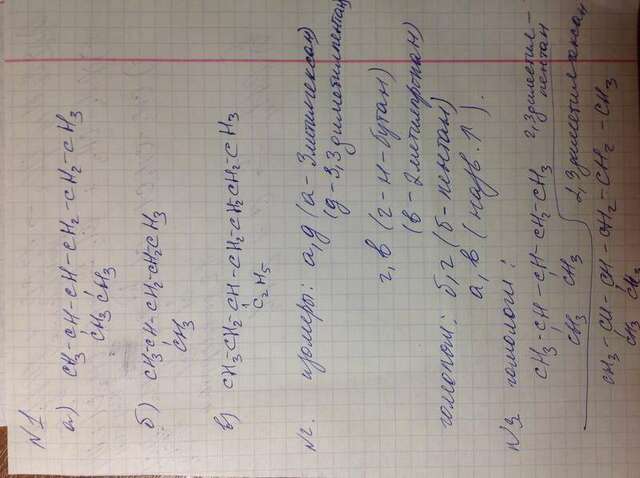 N1
а.) CH3-CH-CH-CH2-CH2-CH3
CH3 CH3
б) CH3-CH-CH2-CH2-CH3
CH3
в) CH3-CH2-CH-CH2-CH2-CH2-CH3
C2H5
N2. изомеры: а,д (а-3метилгексан)
(д-3,3диметилпентан)
г,в (г-н-бутан)
(в-2метилпропан)
гомологи: б,г (б-пентан)
а,в (назв.↑).
N3 гомологи:
CH3-CH-CH-CH2-CH3 2,3диметил-
CH3 CH3 пентан
2,3диметилгексан
CH3-CH-CH-CH2-CH2-CH3
CH3 CH3